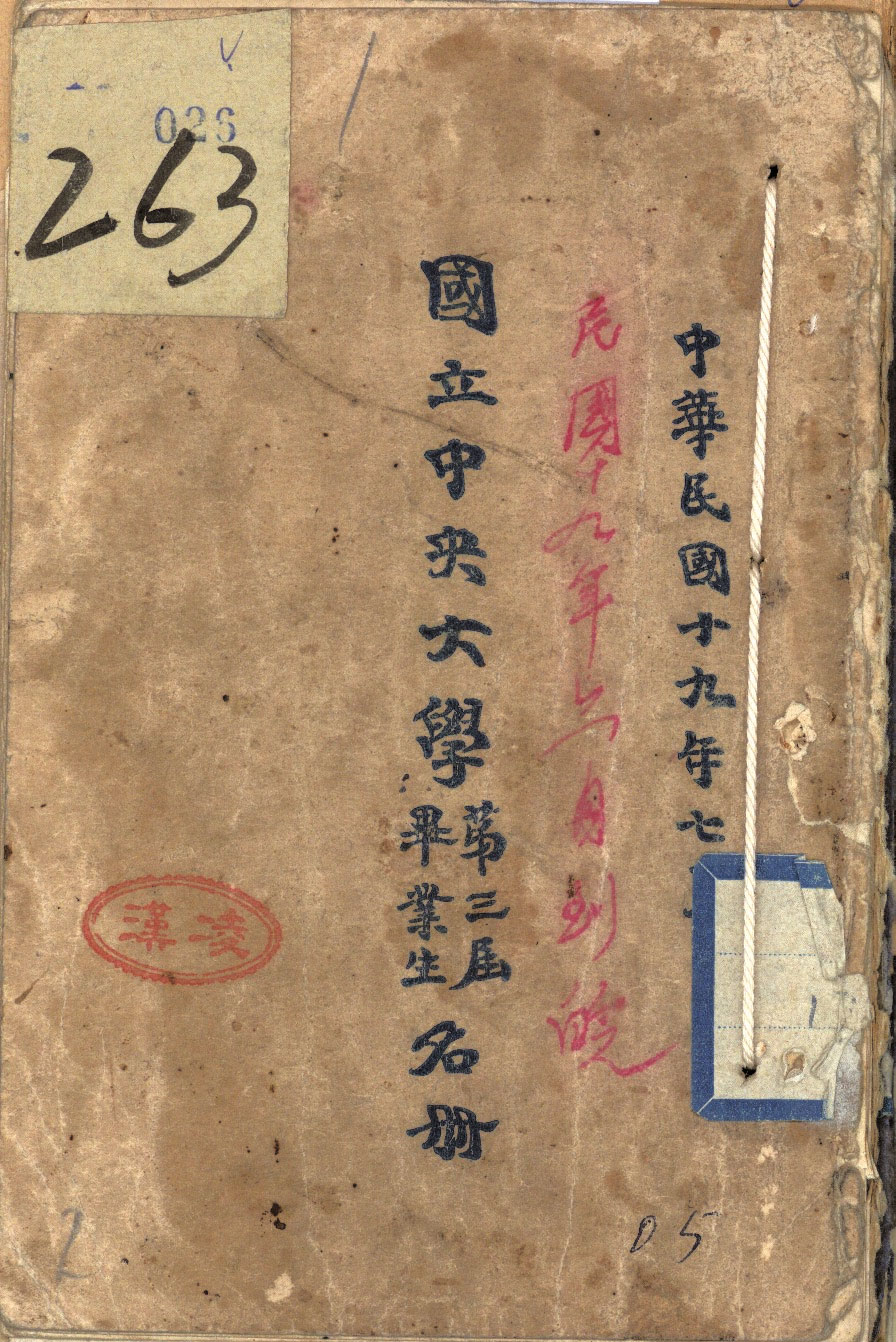 026
263
中華民國十九年七
民國十九年六月到皖
國立中央大學第三屆畢業生名册
凌漢
05
2